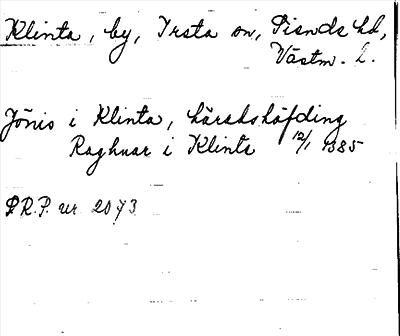 Klinta, by, Irsta sn, Siends hd,
Västm. l.
Jönis i Klinta, häradshöfding
Raghnar i Klinta 12/1 1385
S.R.P. nr 2073